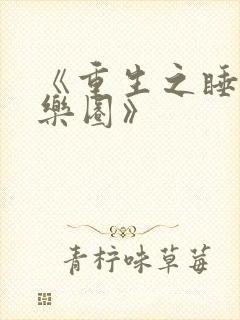 《重生之睡
樂園》
青柠味草莓